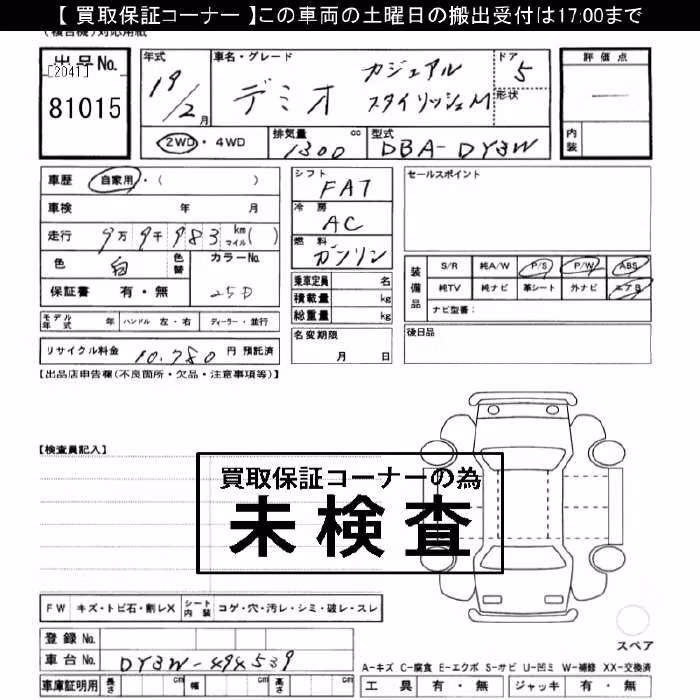 【 買取保証コーナー 】この車両の土曜日の搬出受付は17:00まで
出品No.
[2041]
81015
年式
19/2月
車名・グレード
デミオ
カジュアル
スタイリッシュM
ドア
5
形状
評価点
内装
2WD・4WD
排気量
1300
cc
型式
DBA-DY3W
車歴 自家用・( )
車検 年 月
走行 9万9千983 km マイル( )
色 白 色替 カラーNo. 25D
保証書 有・無
モデル年式 年 ハンドル 左・右 ディーラー・並行
リサイクル料金 10.780 円 預託済
シフト
FAT
冷房
AC
燃料
ガソリン
乗車定員 名
積載量 kg
総重量 kg
名変期限
月 日
セールスポイント
装備品
S/R 純A/W P/S P/W ABS
純TV 純ナビ 革シート 外ナビ エアB
ナビ型番:
後日品
【出品店申告欄(不良箇所・欠品・注意事項等)】
【検査員記入】
買取保証コーナーの為
未検査
FW キズ・トビ石・割レX シート内装 コゲ・穴・汚レ・シミ・破レ・スレ
登録No.
車台No. DY3W-494539
車庫証明用 長さ cm 幅 cm 高さ cm
スペア
A-キズ C-腐食 E-エクボ S-サビ U-凹ミ W-補修 XX-交換済
工具 有・無 ジャッキ 有・無